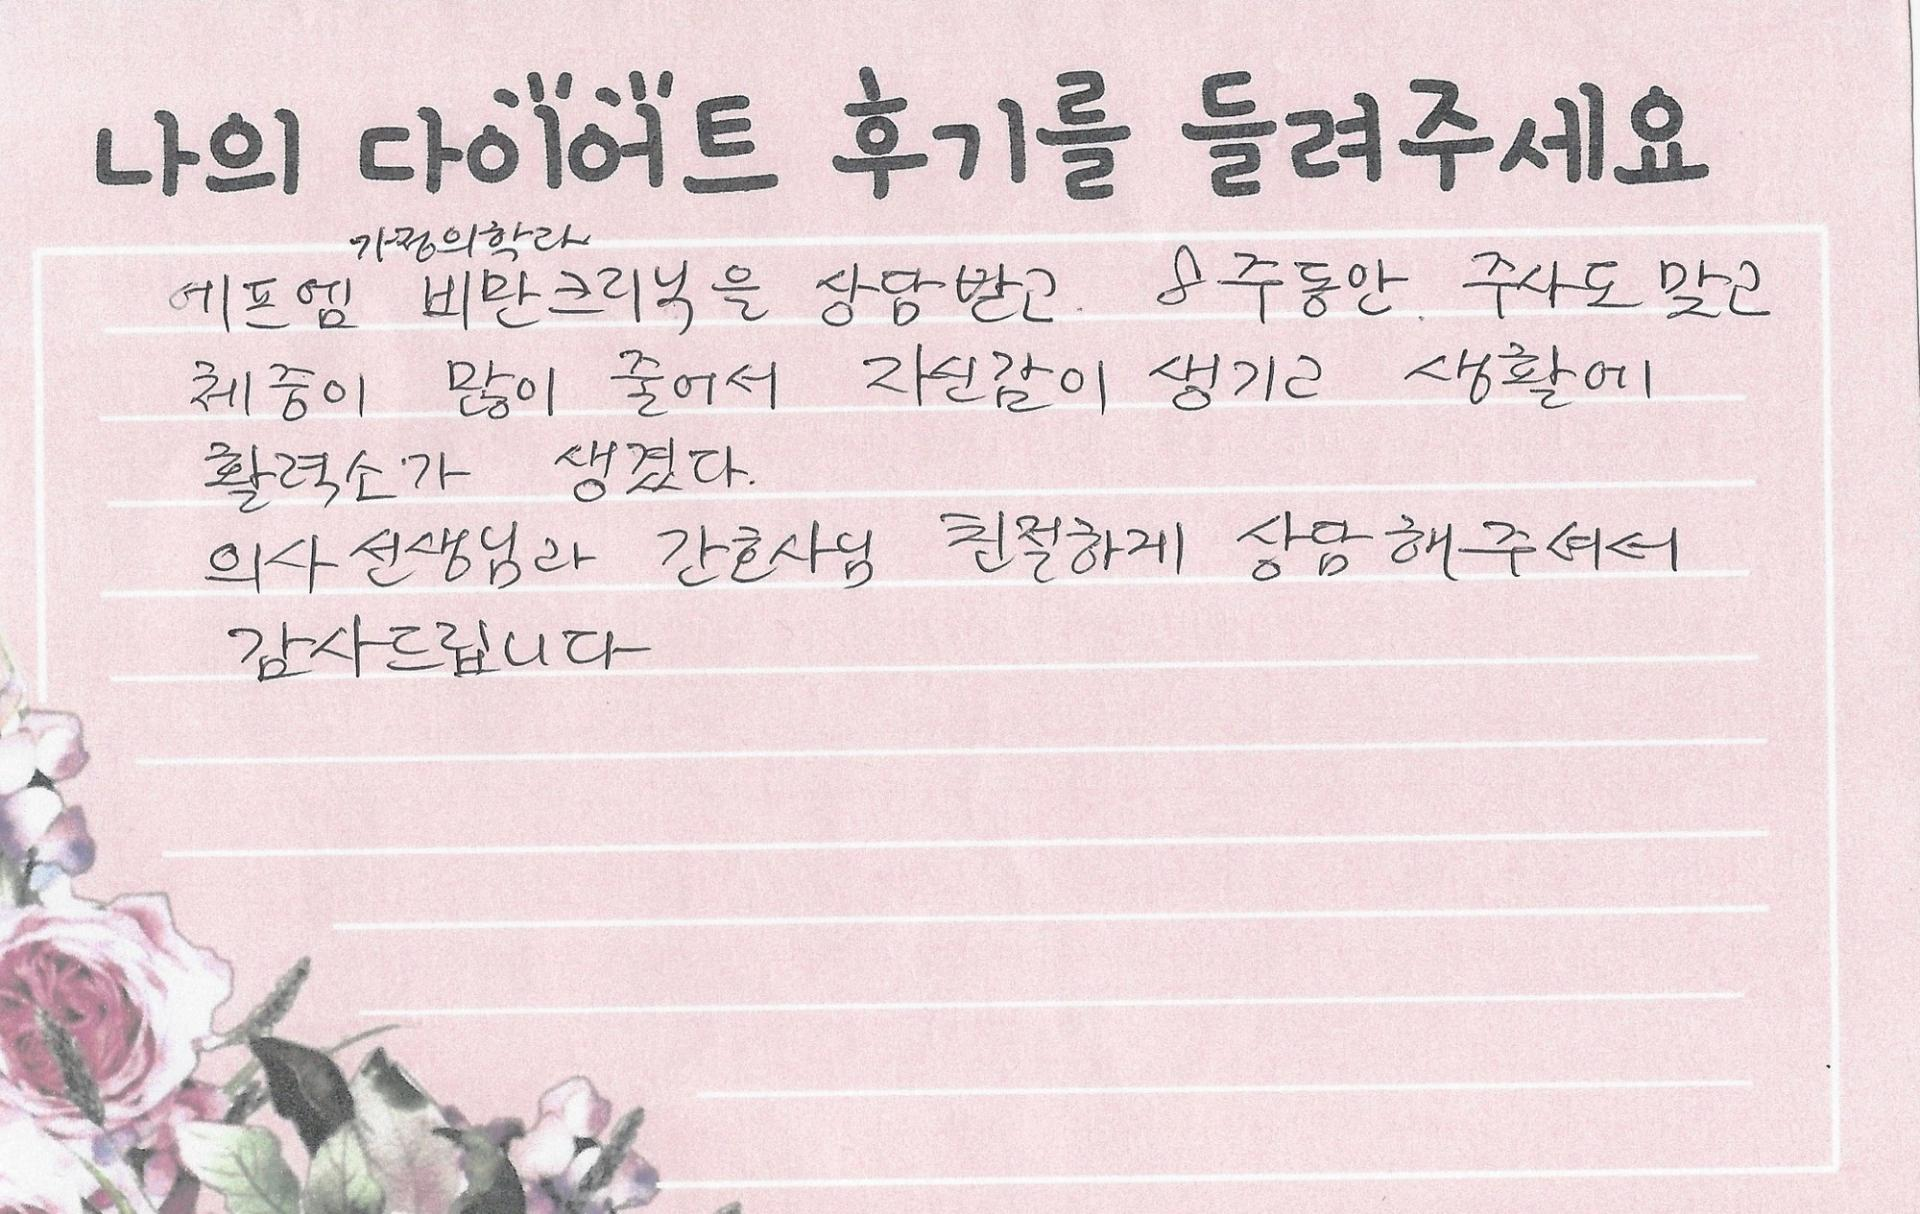 나의 다이어트 후기를 들려주세요
가정의학과
에프엠 비만크리닉을 상담받고. 8주동안. 주사도 맞고
체중이 많이 줄어서 자신감이 생기고 생활에
활력소가 생겼다.
의사선생님과 간호사님 친절하게 상담해주셔서
감사드립니다